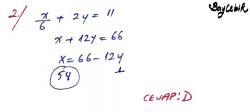 BayCebir
2/ x/6 + 2y = 11
x + 12y = 66
x = 66 - 12y
54 1
CEVAP: D